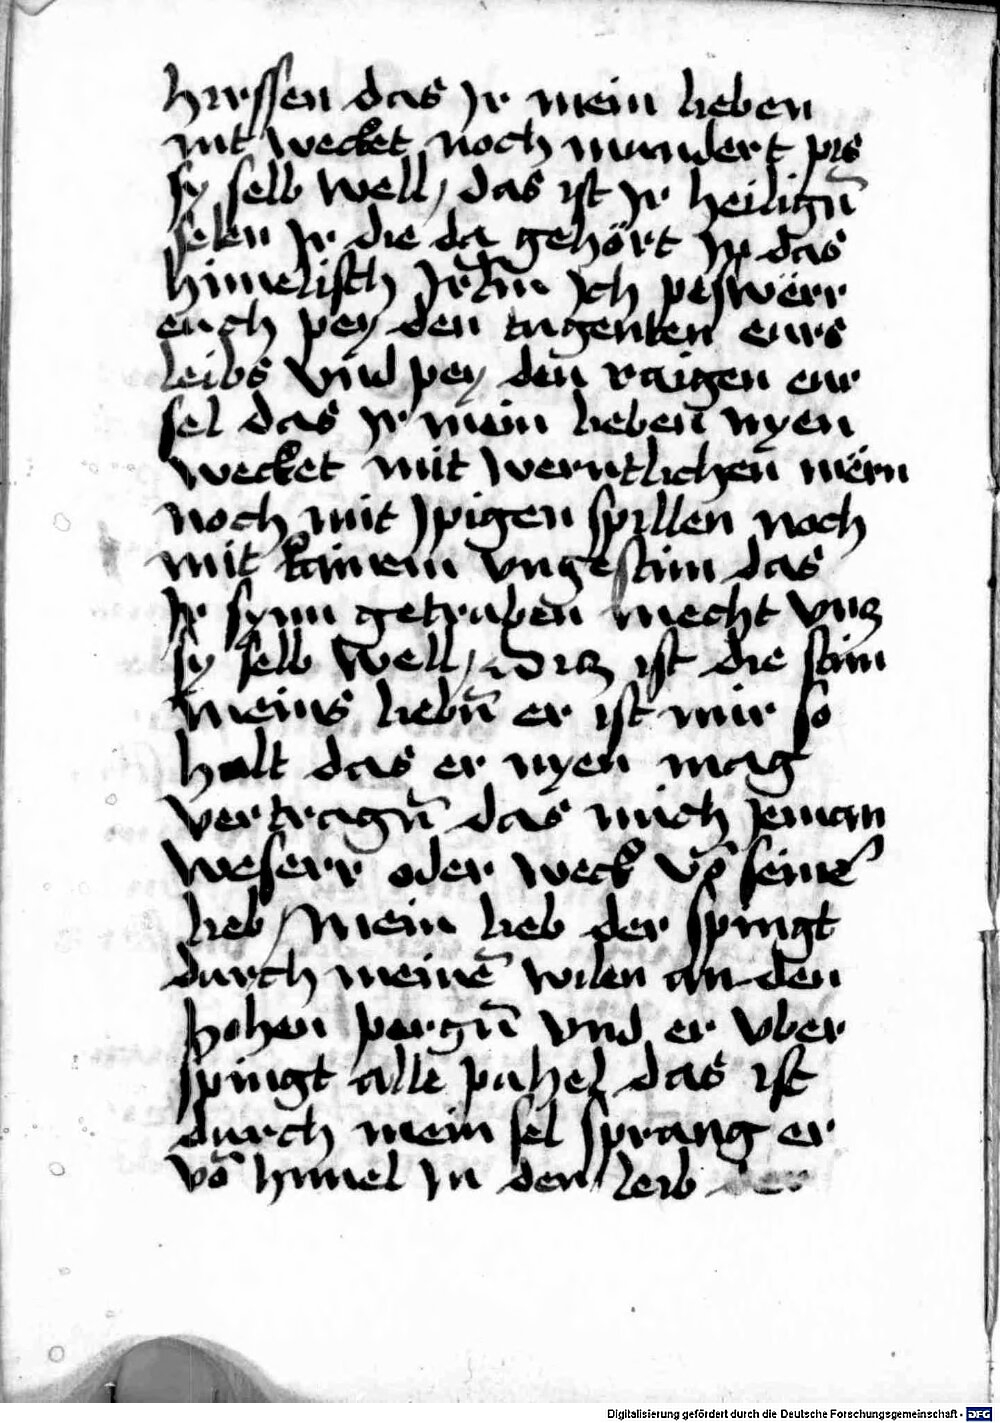 hirssen das Jr mein lieben
nit wecket noch mundert pis
sy selb well / das ist Jr heiligñ
selen Jr die da gehört Jn das
himelisch Jrłm Jch peswërr
euch pey den tugenten eurs
leibs vnd pey den raigen eur
sel das Jr mein lieben nyen
wecket mit werntlichen mërn
noch mit Jpigen spillen noch
mit kainem vngestim das
Jr synn getruben mecht vnß
sy selb well / Diß ist die stim
meins liebñ er ist mir so
holt das er nyen mag
vertragñ das mich Jeman
weserr oder weck võ seinẽ
lieb / Mein lieb der spingt
durch meinẽ wilen an den
hohen pergñ vnd er vber
spingt alle puhel das ist
durch mein sel sprang er
võ himel Jn den leib der
Digitalisierung gefördert durch die Deutsche Forschungsgemeinschaft - DFG